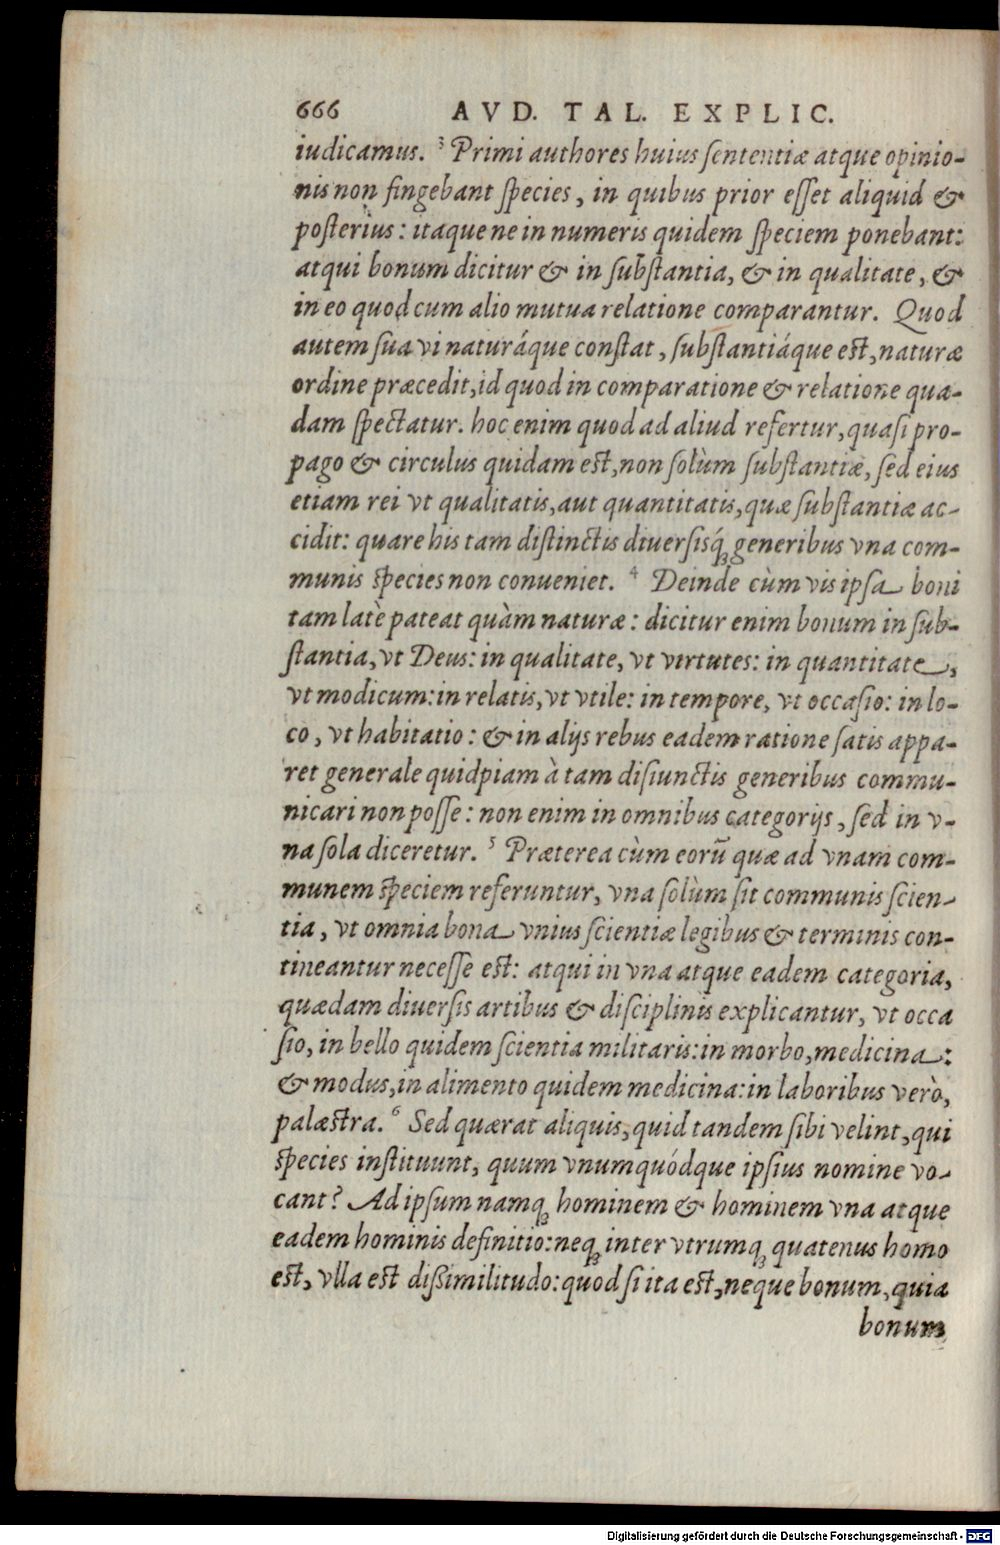 666 AVD. TAL. EXPLIC.
iudicamus. ³ Primi authores huius ſententiæ atque opinio-
nis non fingebant ſpecies, in quibus prior eſſet aliquid &
poſterius: itaque ne in numeris quidem ſpeciem ponebant:
atqui bonum dicitur & in ſubſtantia, & in qualitate, &
in eo quod cum alio mutua relatione comparantur. Quod
autem ſua vi naturáque conſtat, ſubſtantiáque eſt, naturæ
ordine præcedit, id quod in comparatione & relatione qua-
dam ſpectatur. hoc enim quod ad aliud refertur, quaſi pro-
pago & circulus quidam eſt, non ſolùm ſubſtantiæ, ſed eius
etiam rei vt qualitatis, aut quantitatis, quæ ſubſtantiæ ac-
cidit: quare his tam diſtinctis diuerſisq́ꝫ generibus vna com-
munis ſpecies non conueniet. ⁴ Deinde cùm vis ipſa boni
tam latè pateat quàm naturæ: dicitur enim bonum in ſub-
ſtantia, vt Deus: in qualitate, vt virtutes: in quantitate,
vt modicum: in relatis, vt vtile: in tempore, vt occaſio: in lo-
co, vt habitatio: & in alijs rebus eadem ratione ſatis appa-
ret generale quidpiam à tam diſiunctis generibus commu-
nicari non poſſe: non enim in omnibus categorijs, ſed in v-
na ſola diceretur. ⁵ Præterea cùm eorũ quæ ad vnam com-
munem ſpeciem referuntur, vna ſolùm ſit communis ſcien-
tia, vt omnia bona vnius ſcientiæ legibus & terminis con-
tineantur neceſſe eſt: atqui in vna atque eadem categoria,
quædam diuerſis artibus & diſciplinis explicantur, vt occa
ſio, in bello quidem ſcientia militaris: in morbo, medicina:
& modus, in alimento quidem medicina: in laboribus verò,
palæſtra. ⁶ Sed quærat aliquis, quid tandem ſibi velint, qui
ſpecies inſtituunt, quum vnumquódque ipſius nomine vo-
cant? Ad ipſum namqꝫ hominem & hominem vna atque
eadem hominis definitio: neqꝫ inter vtrumqꝫ quatenus homo
eſt, vlla eſt diſsimilitudo: quod ſi ita eſt, neque bonum, quia
bonum
Digitalisierung gefördert durch die Deutsche Forschungsgemeinschaft - DFG